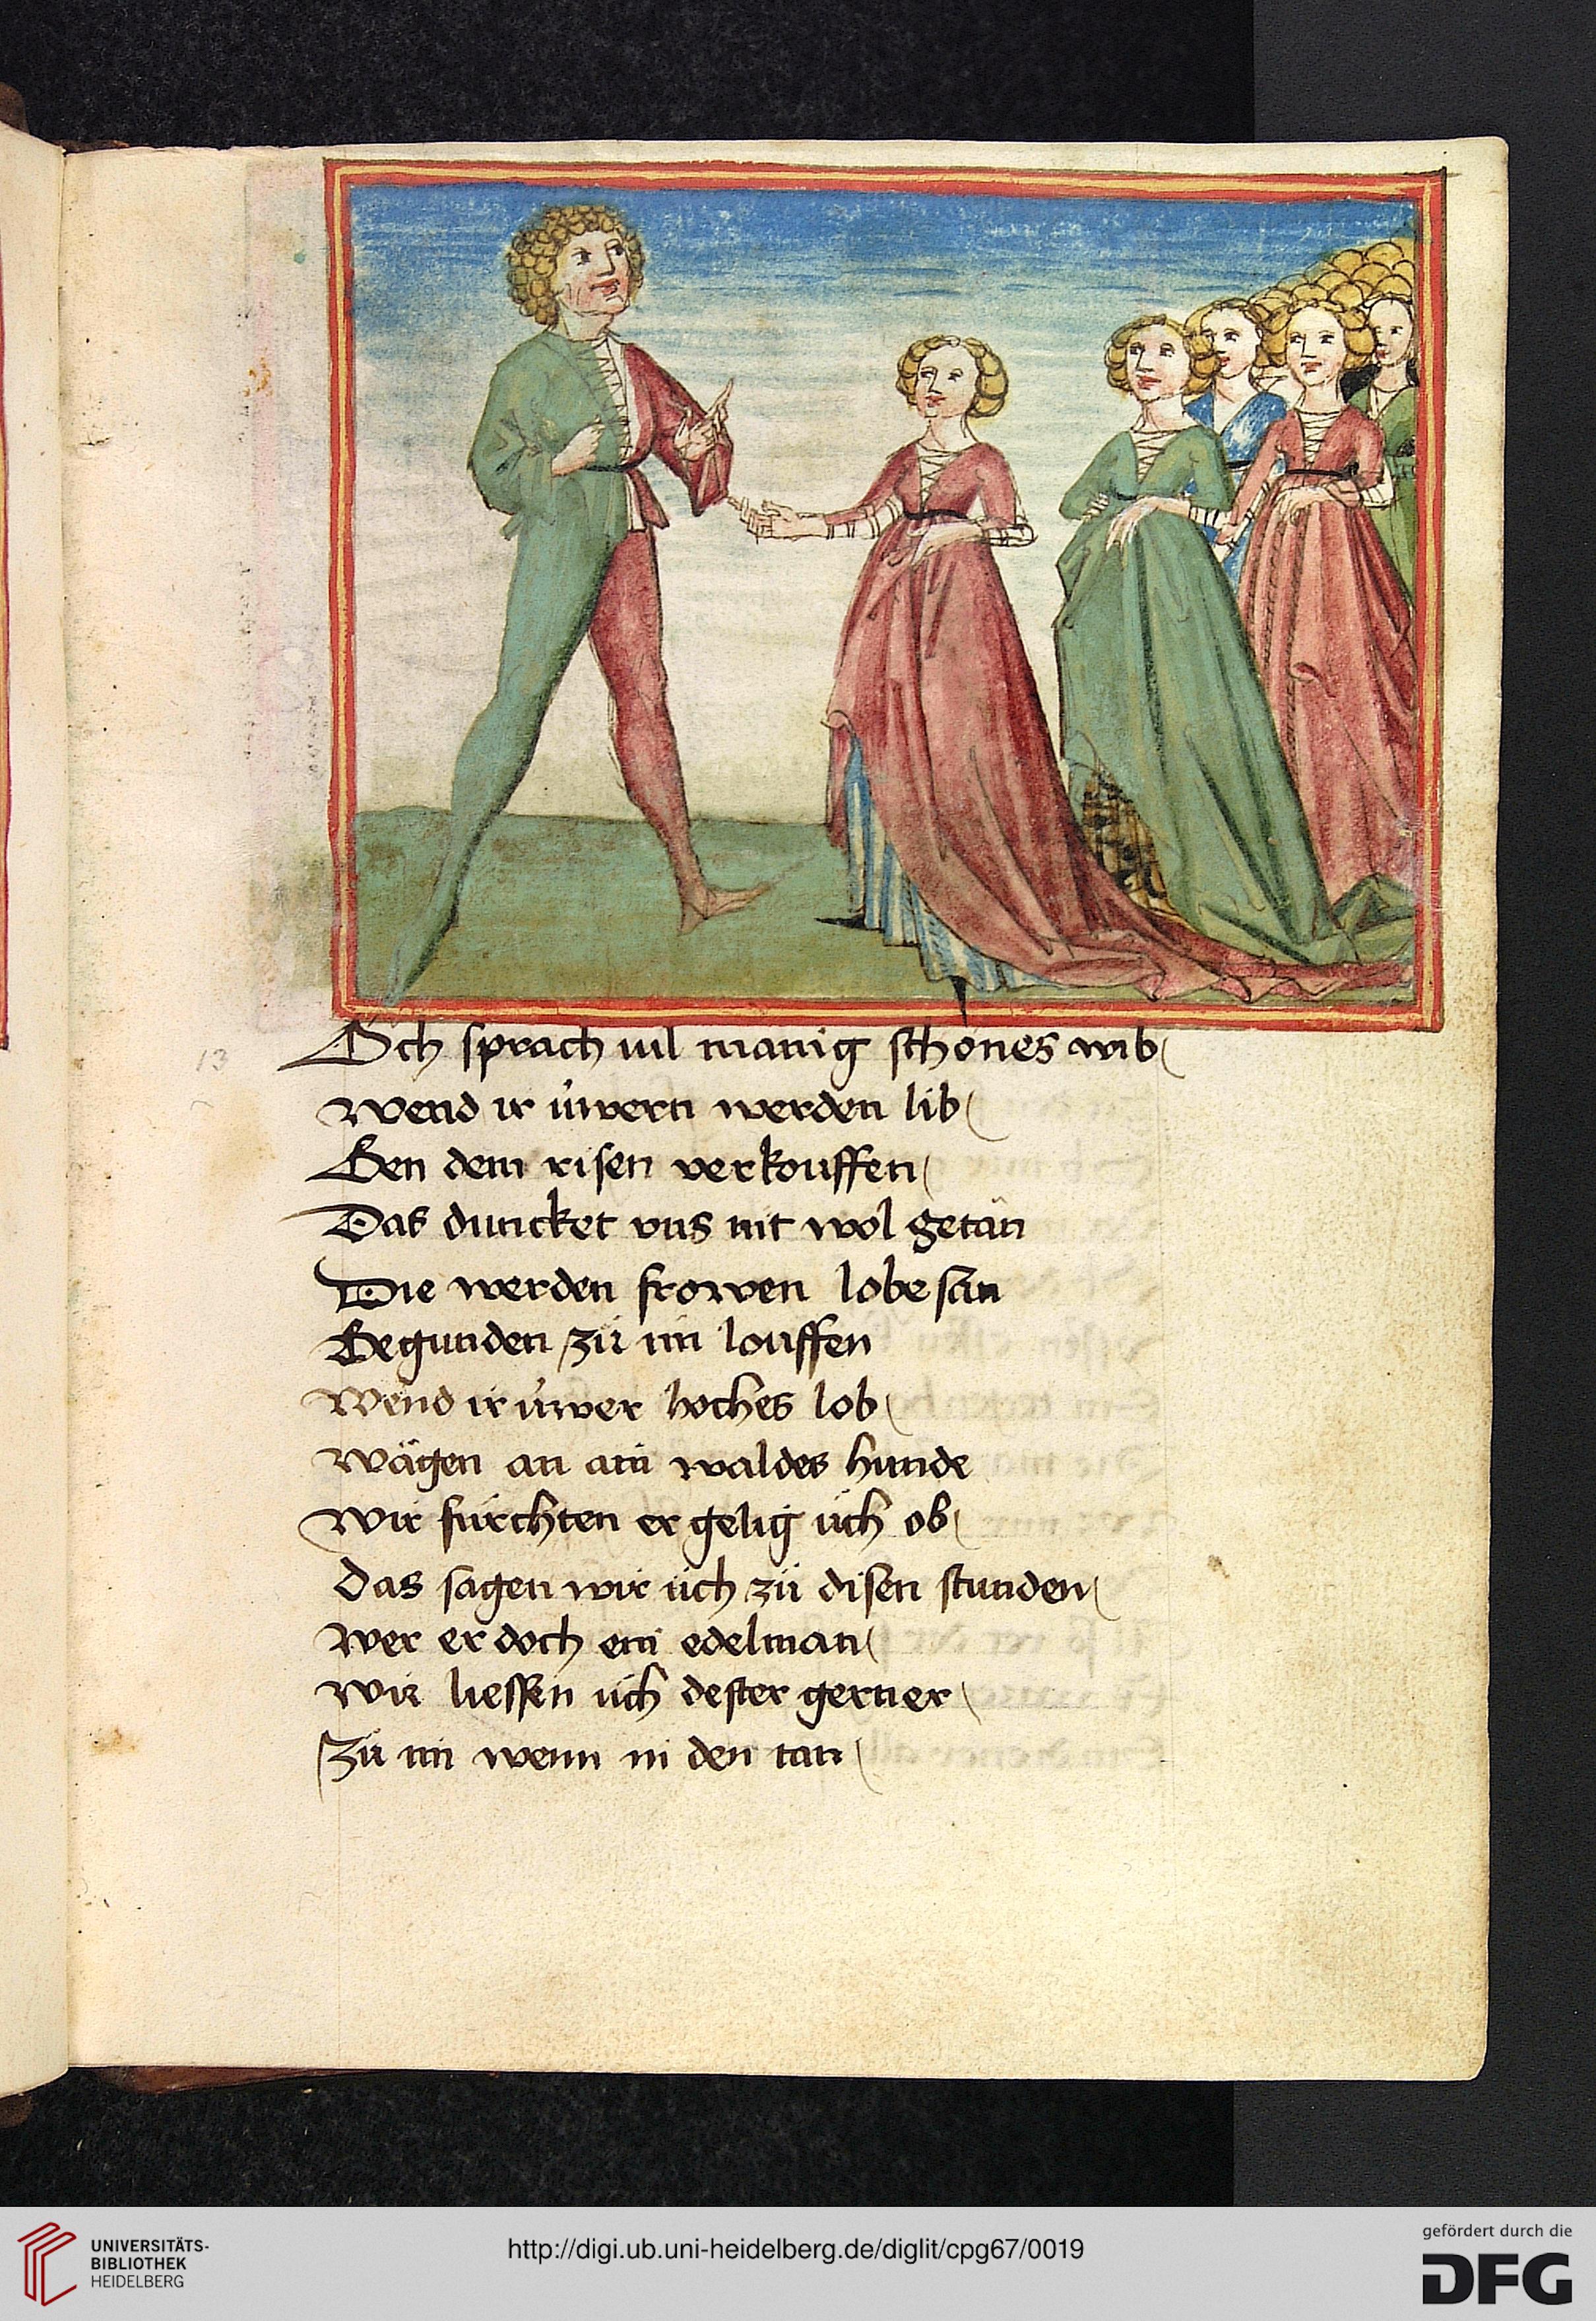 Och sprach uil manig schönes wib
Wend ir üwern werden lib
Gen dem risen verkouffen
Das duncket vns nit wol getän
Die werden frowen lobesan
Begunden zü im louffen
Wend ir üwer hoches lob
Wägen an ain waldes hunde
Wir fürchten er gelig üch ob
Das sagen wir üch zü disen stunden
Wer er doch ein edelman
Wir liessen üch dester gerner
Zü im wenn in den tan
13
UNIVERSITÄTS-
BIBLIOTHEK
HEIDELBERG
http://digi.ub.uni-heidelberg.de/diglit/cpg67/0019
gefördert durch die
DFG